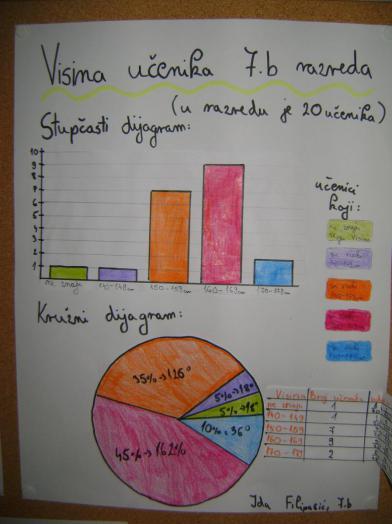 Visina učenika 7.b razreda
(u razredu je 20 učenika)
Stupčasti dijagram:
10
9
8
7
6
5
4
3
2
1
ne znaju 140-149cm 150-159cm 160-169cm 170-179cm
učenici
koji:
Kružni dijagram:
35%→126°
5%→18°
5%→18°
10%→36°
45%→162%
Visina Broj
ne znaju 1
140-149 1
150-159 7
160-169 9
170-179 2
Ida 7.b